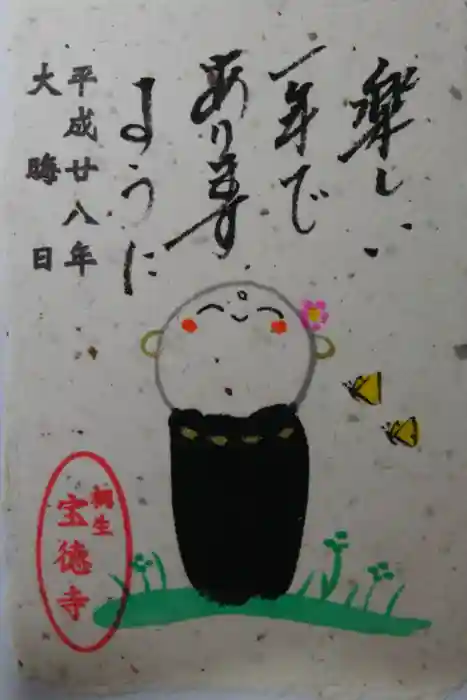 楽しい
一年で
あります
ように
平成廿八年
大晦日
桐生
宝徳寺